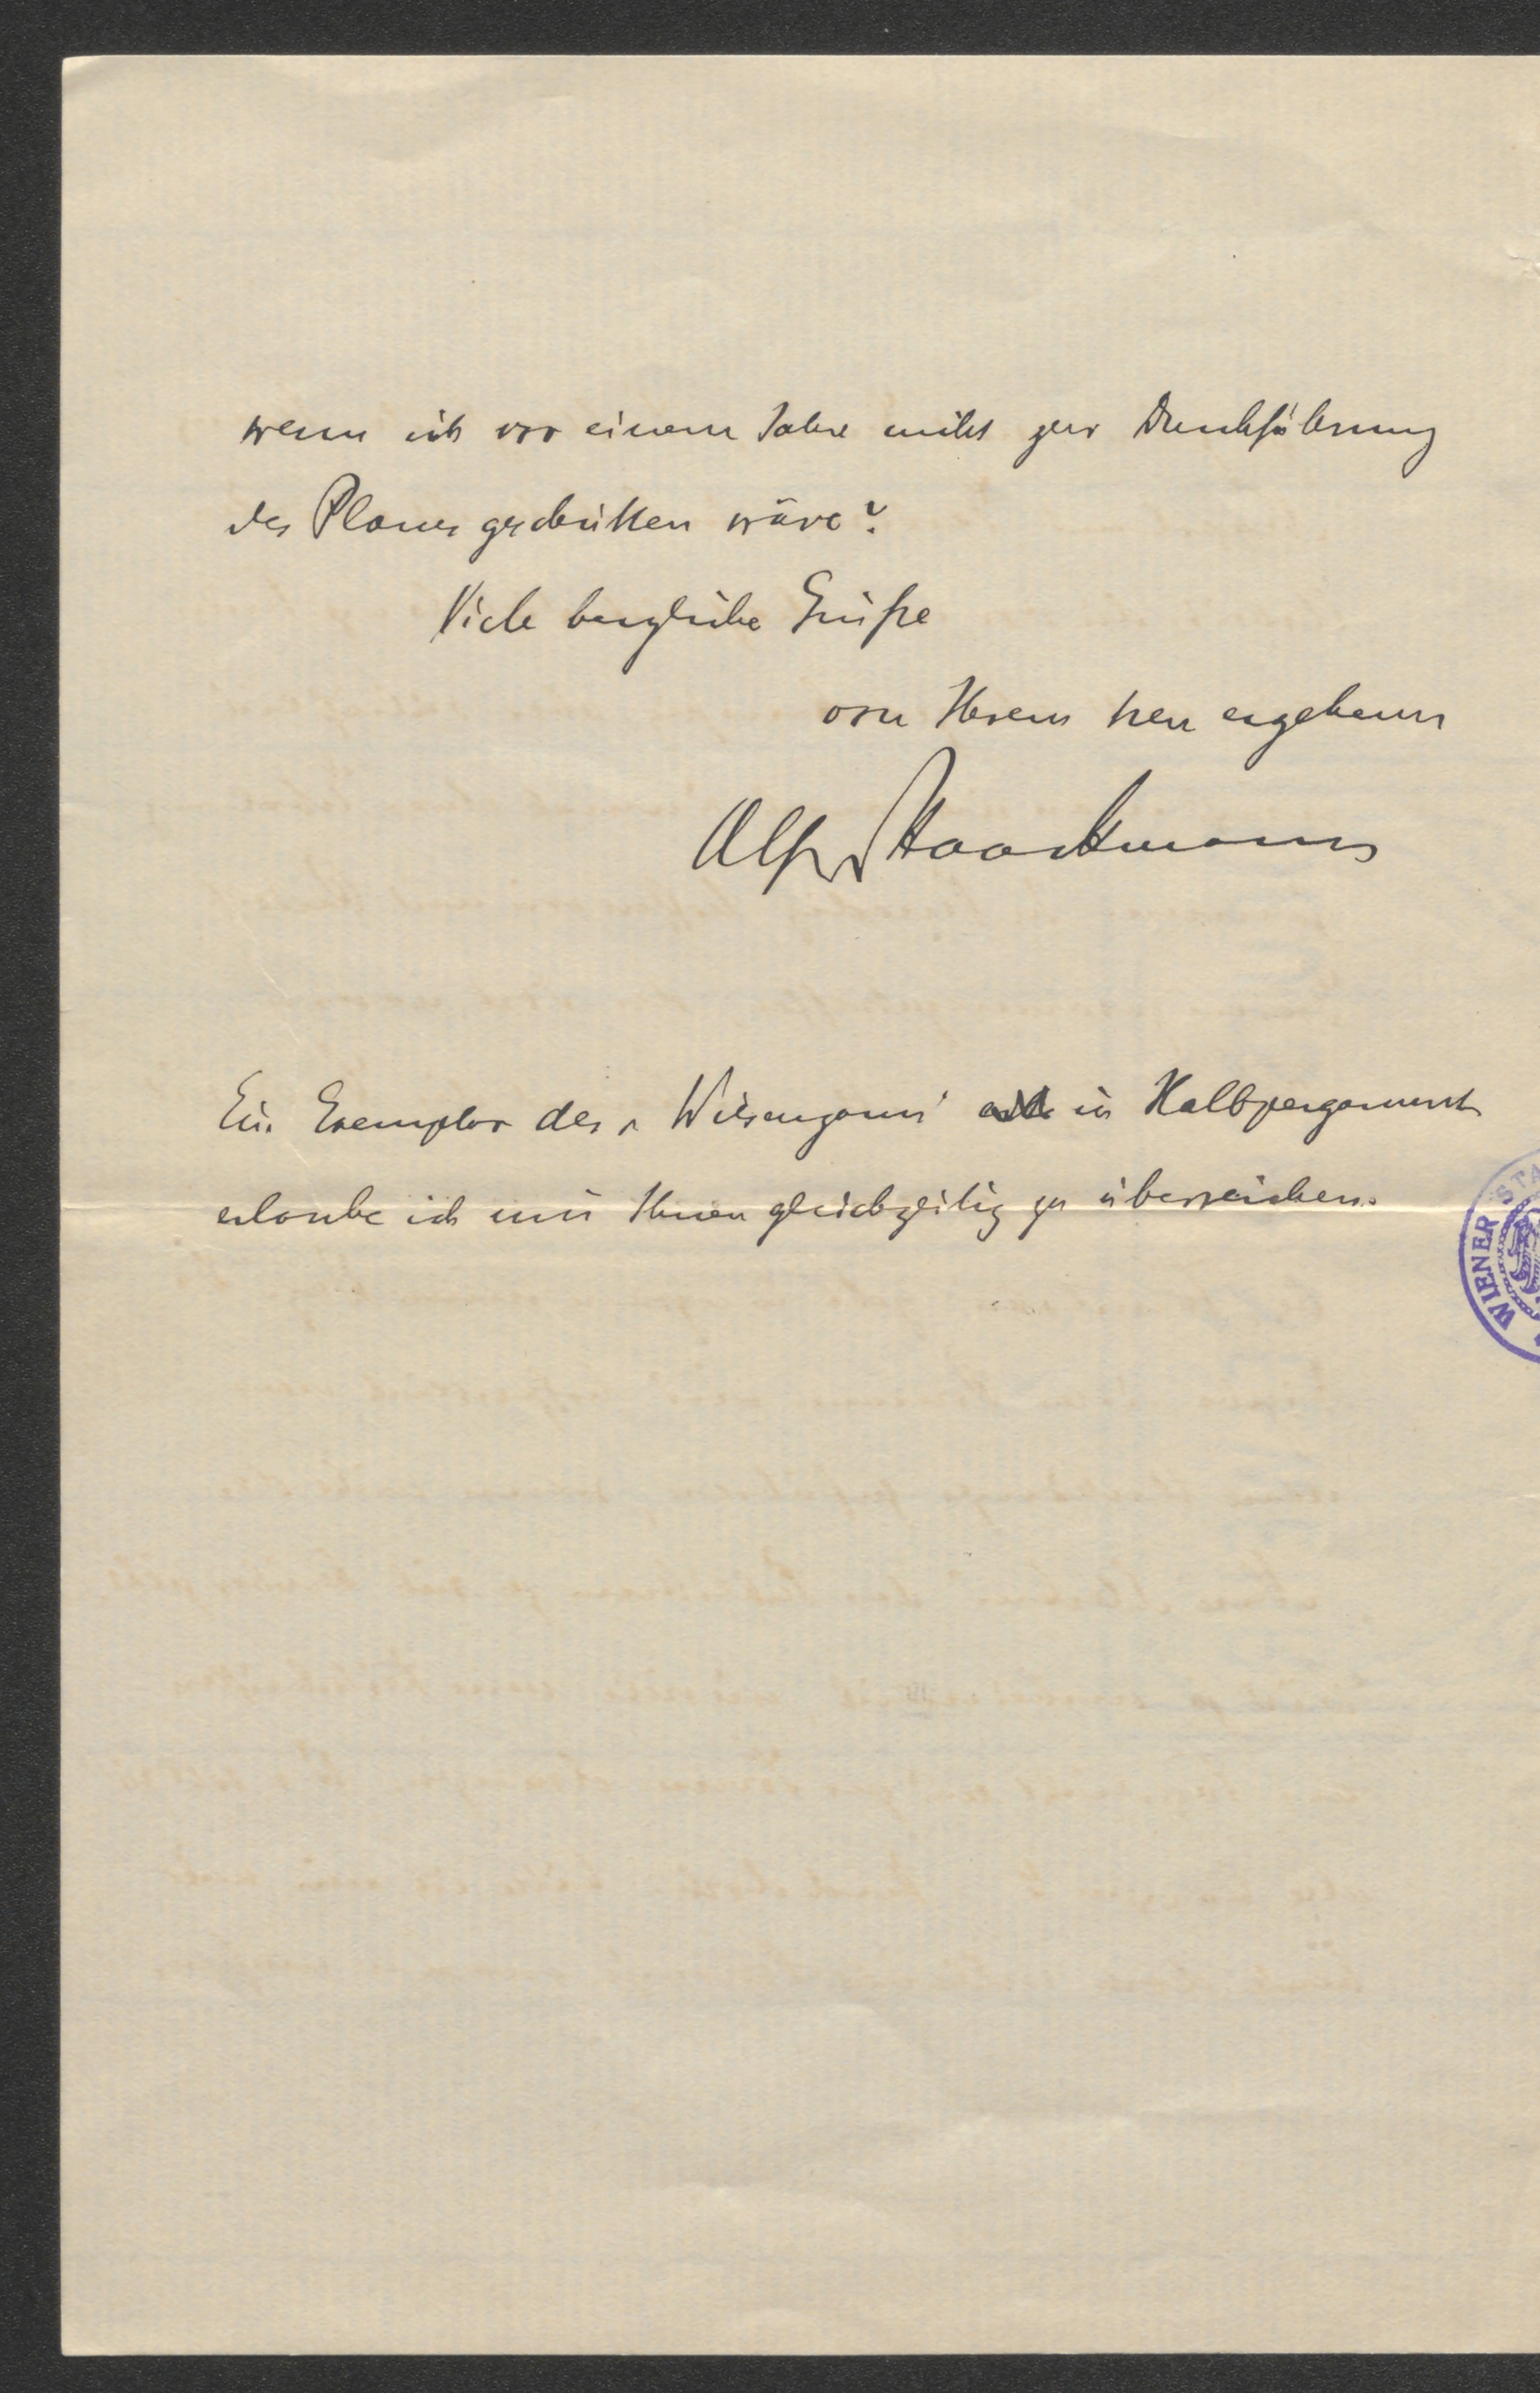 wenn ich vor einem Jahre nicht zur Durchführung
des Planes geschritten wäre?
Viele herzliche Grüße
von Ihrem treu ergebenen
Alfr Staackmann
Ein Exemplar des „Wiesenzaun" in Halbpergament
erlaube ich mir Ihnen gleichzeitig zu überreichen.
WIENER STA